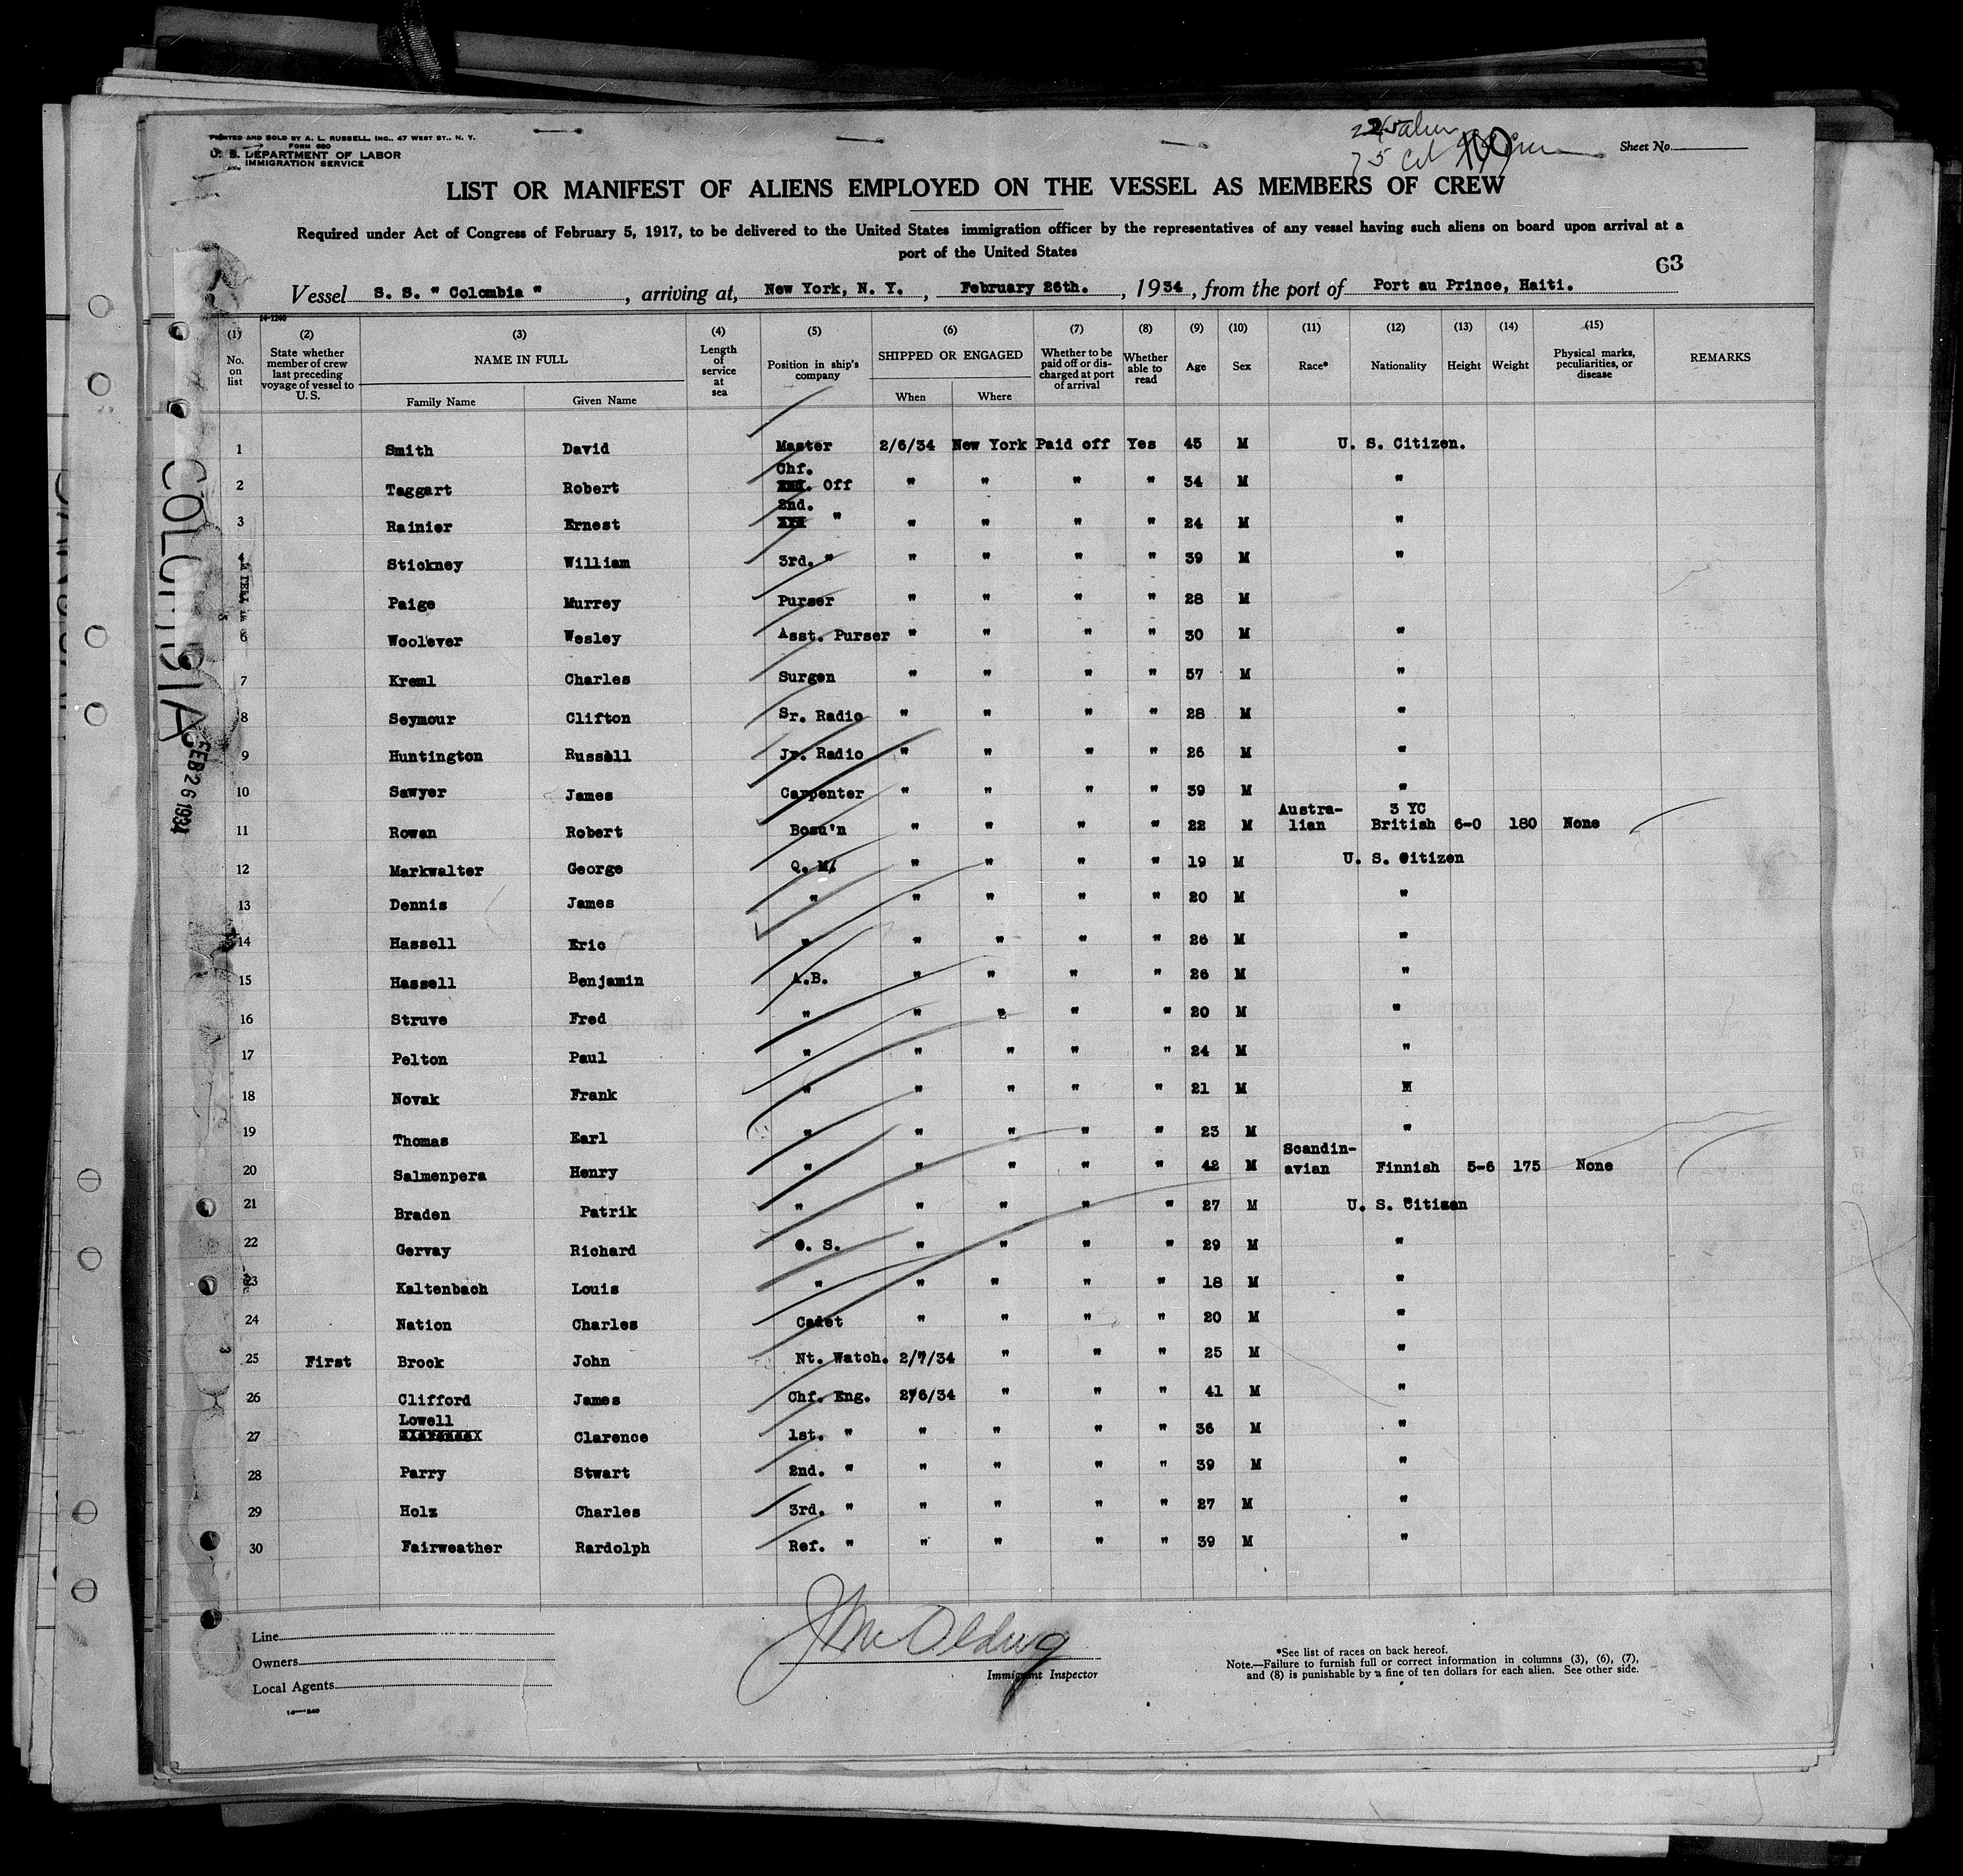 PRINTED AND SOLD BY A. L. RUSSELL, INC., 47 WEST ST., N. Y.
FORM 680
U. S. DEPARTMENT OF LABOR
IMMIGRATION SERVICE
Sheet No.
LIST OR MANIFEST OF ALIENS EMPLOYED ON THE VESSEL AS MEMBERS OF CREW
Required under Act of Congress of February 5, 1917, to be delivered to the United States immigration officer by the representatives of any vessel having such aliens on board upon arrival at a
port of the United States
63
Vessel S. S. " Colombia " , arriving at, New York, N. Y. , February 26th. , 1934 , from the port of Port au Prince, Haiti.
(1) (2) (3) (4) (5) (6) (7) (8) (9) (10) (11) (12) (13) (14) (15)
No. on list State whether member of crew last preceding voyage of vessel to U. S. NAME IN FULL Length of service at sea Position in ship's company SHIPPED OR ENGAGED Whether to be paid off or discharged at port of arrival Whether able to read Age Sex Race* Nationality Height Weight Physical marks, peculiarities, or disease REMARKS
Family Name Given Name When Where
1 Smith David Master 2/6/34 New York Paid off Yes 45 M U. S. Citizen.
2 Taggart Robert Chf. Off " " " " 34 M "
3 Rainier Ernest 2nd. " " " " " 24 M "
4 Stickney William 3rd. " " " " " 39 M "
Paige Murrey Purser " " " " 28 M
6 Woolever Wesley Asst. Purser " " " " 30 M "
7 Kreml Charles Surgen " " " " 57 M "
8 Seymour Clifton Sr. Radio " " " " 28 M "
9 Huntington Russell Jr. Radio " " " " 26 M "
10 Sawyer James Carpenter " " " " 39 M "
11 Rowan Robert Bosu'n " " " " 22 M Austra-lian 3 YC British 6-0 180 None
12 Markwalter George Q. M. " " " " 19 M U. S. Citizen
13 Dennis James " " " " " 20 M "
14 Hassell Eric " " " " " 26 M "
15 Hassell Benjamin A.B. " " " " 26 M "
16 Struve Fred " " " " " 20 M "
17 Pelton Paul " " " " " 24 M "
18 Novak Frank " " " " " 21 M "
19 Thomas Earl " " " " " 23 M "
20 Salmenpera Henry " " " " " 42 M Scandin-avian Finnish 5-6 175 None
21 Braden Patrik " " " " " 27 M U. S. Citizen
22 Gervay Richard O. S. " " " " 29 M "
23 Kaltenbach Louis " " " " " 18 M "
24 Nation Charles Cadet " " " " 20 M "
25 First Brook John Nt. Watch. 2/7/34 " " " 25 M "
26 Clifford James Chf. Eng. 2/6/34 " " " 41 M "
27 Lowell Clarence 1st. " " " " " 36 M "
28 Parry Stwart 2nd. " " " " " 39 M "
29 Holz Charles 3rd. " " " " " 27 M "
30 Fairweather Rardolph Ref. " " " " " 39 M "
COLOMBIA
FEB 26 1934
Line
Owners
Local Agents
Immigrant Inspector
*See list of races on back hereof.
Note.—Failure to furnish full or correct information in columns (3), (6), (7),
and (8) is punishable by a fine of ten dollars for each alien. See other side.